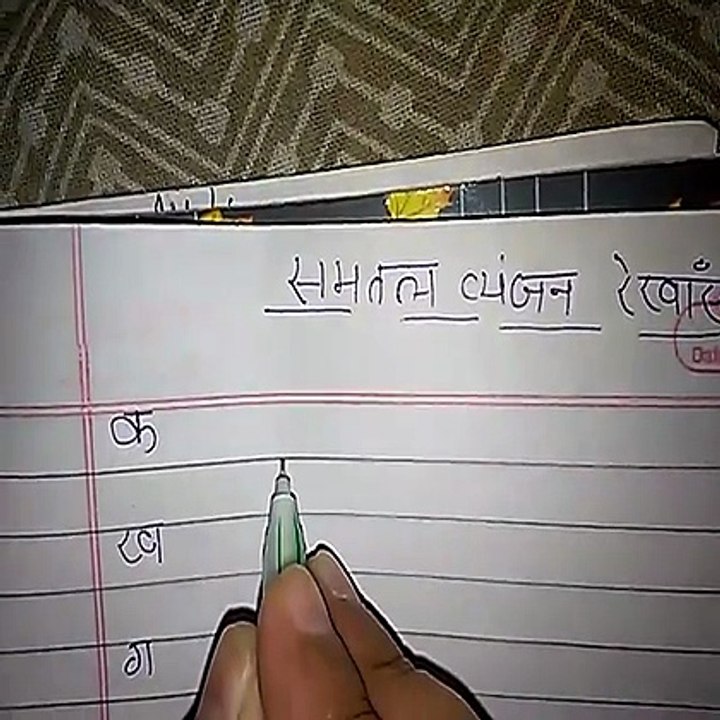 समतल व्यंजन रेखाएँ
क
ख
ग